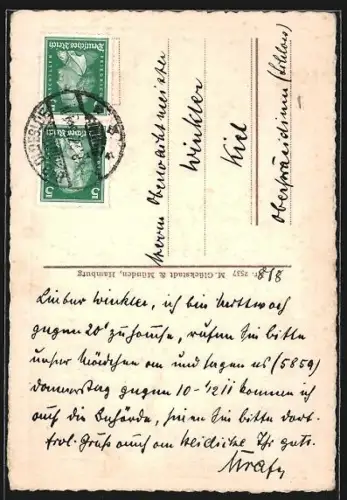 Deutsches Reich
Deutsches Reich
5
Herrn Oberwachtmeister
Winkler
Kiel
Oberpräsidium (Schloss)
Nr. 7557 M. Glückstadt & Münden, Hamburg
8/8
Lieber Winkler, ich bin Mittwoch
gegen 20° zuhause, rufen Sie bitte
unser Mädchen an und sagen es (5859)
Donnerstag gegen 10-1/2 11 kommen ich
auf die Behörde, seien Sie bitte dort.
Frdl. Gruß auch an Ihr